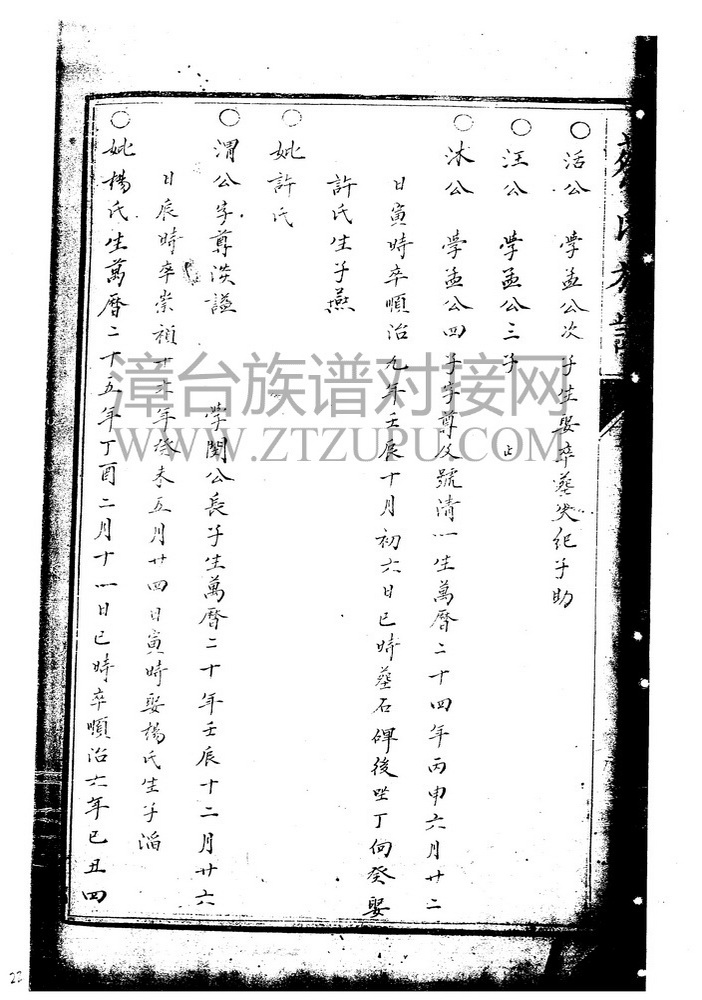 ○活公　學孟公次子生娶卒墓失紀子助
○汪公　學孟公三子　止
○沐公　學孟公四子字尊父號清一生萬曆二十四年丙申六月廿二
日寅時卒順治九年壬辰十月初六日巳時墓石碑後坐丁向癸娶
許氏生子燕
○妣許氏
○渭公字尊淡謚　　學閔公長子生萬曆二十年壬辰十二月廿六
日辰時卒崇禎十六年癸未五月廿四日寅時娶楊氏生子滔
○妣楊氏生萬曆二十五年丁酉二月十一日巳時卒順治六年己丑四
漳台族谱对接网
WWW.ZTZUPU.COM
22